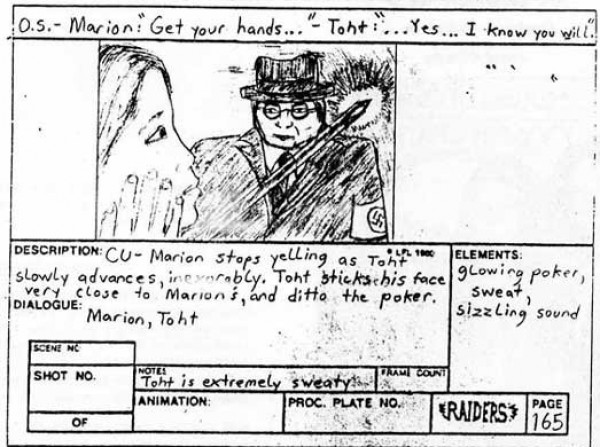 O.S.- Marion: "Get your hands..." - Toht: "...Yes... I know you will."
DESCRIPTION: CU- Marion stops yelling as Toht
© LFL 1980
slowly advances, inexorably. Toht sticks his face
very close to Marion's, and ditto the poker.
DIALOGUE:
Marion, Toht
ELEMENTS:
glowing poker,
sweat,
sizzling sound
SCENE NO.
SHOT NO.
OF
NOTES
Toht is extremely sweaty
FRAME COUNT
ANIMATION:
PROC. PLATE NO.
RAIDERS
PAGE
165